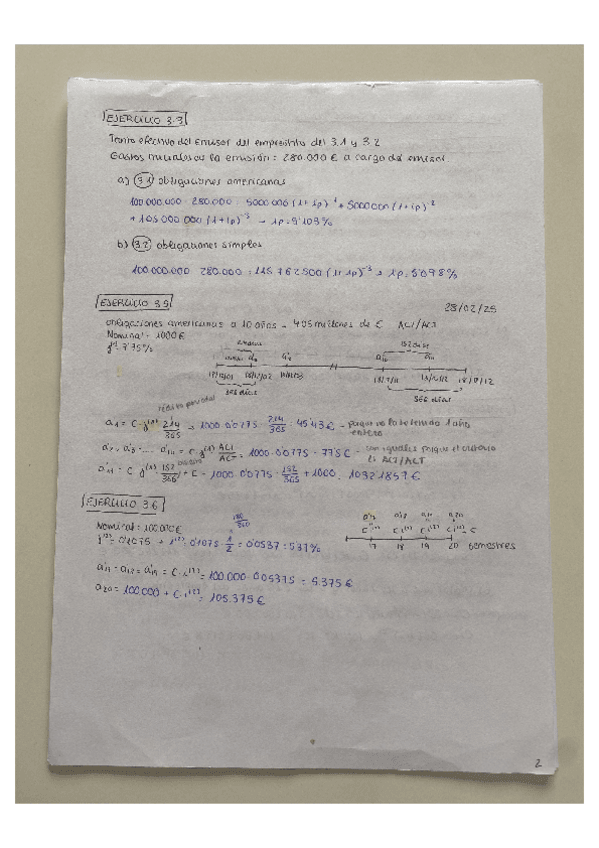 EJERCICIO 3.3
Tanto efectivo del emisor del empréstito del 3.1 y 3.2
Gastos iniciales de la emisión = 280.000 € a cargo del emisor
a) 3.1 obligaciones americanas
100.000.000 - 280.000 = 5000000 (1+ip)⁻¹ + 5000000 (1+ip)⁻²
+ 105 000 000 (1+ip)⁻³ → ip = 5'103%
b) 3.2 obligaciones simples
100.000.000 - 280.000 = 115.762.500 (1+ip)⁻³ → ip = 5'098%
EJERCICIO 3.5
28/02/25
obligaciones americanas a 10 años - 405 millones de € ACT/ACT
Nominal = 1000 €
7'75%
365 días
365 días
a₁ = C · 214/365 → 1000 · 0'0775 · 214/365 = 45'43 € - porque no
1 año
entero
= 1000 · 0'0775 = 77'5 € - son iguales porque el
es ACT/ACT
152/365 + C = 1000 · 0'0775 · 152/365 + 1000 = 1032'1857 €
EJERCICIO 3.6
Nominal = 100.000 €
180/360
= 0'1075 → i⁽²⁾ = 0'1075 · 1/2 = 0'0537 = 5'37%
17 18 19 20 semestres
= C · i⁽²⁾ = 100.000 · 0'05375 = 5.375 €
a₂₀ = 100.000 + C · i⁽²⁾ = 105.375 €
2